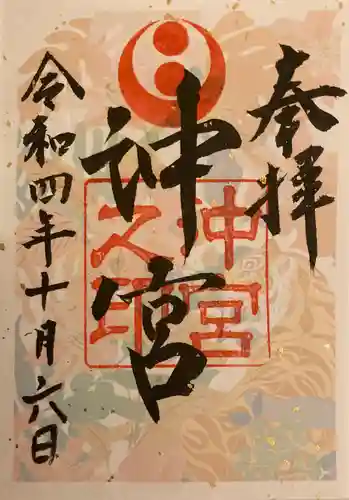 奉拝
沖宮
沖宮之印
令和四年十月六日